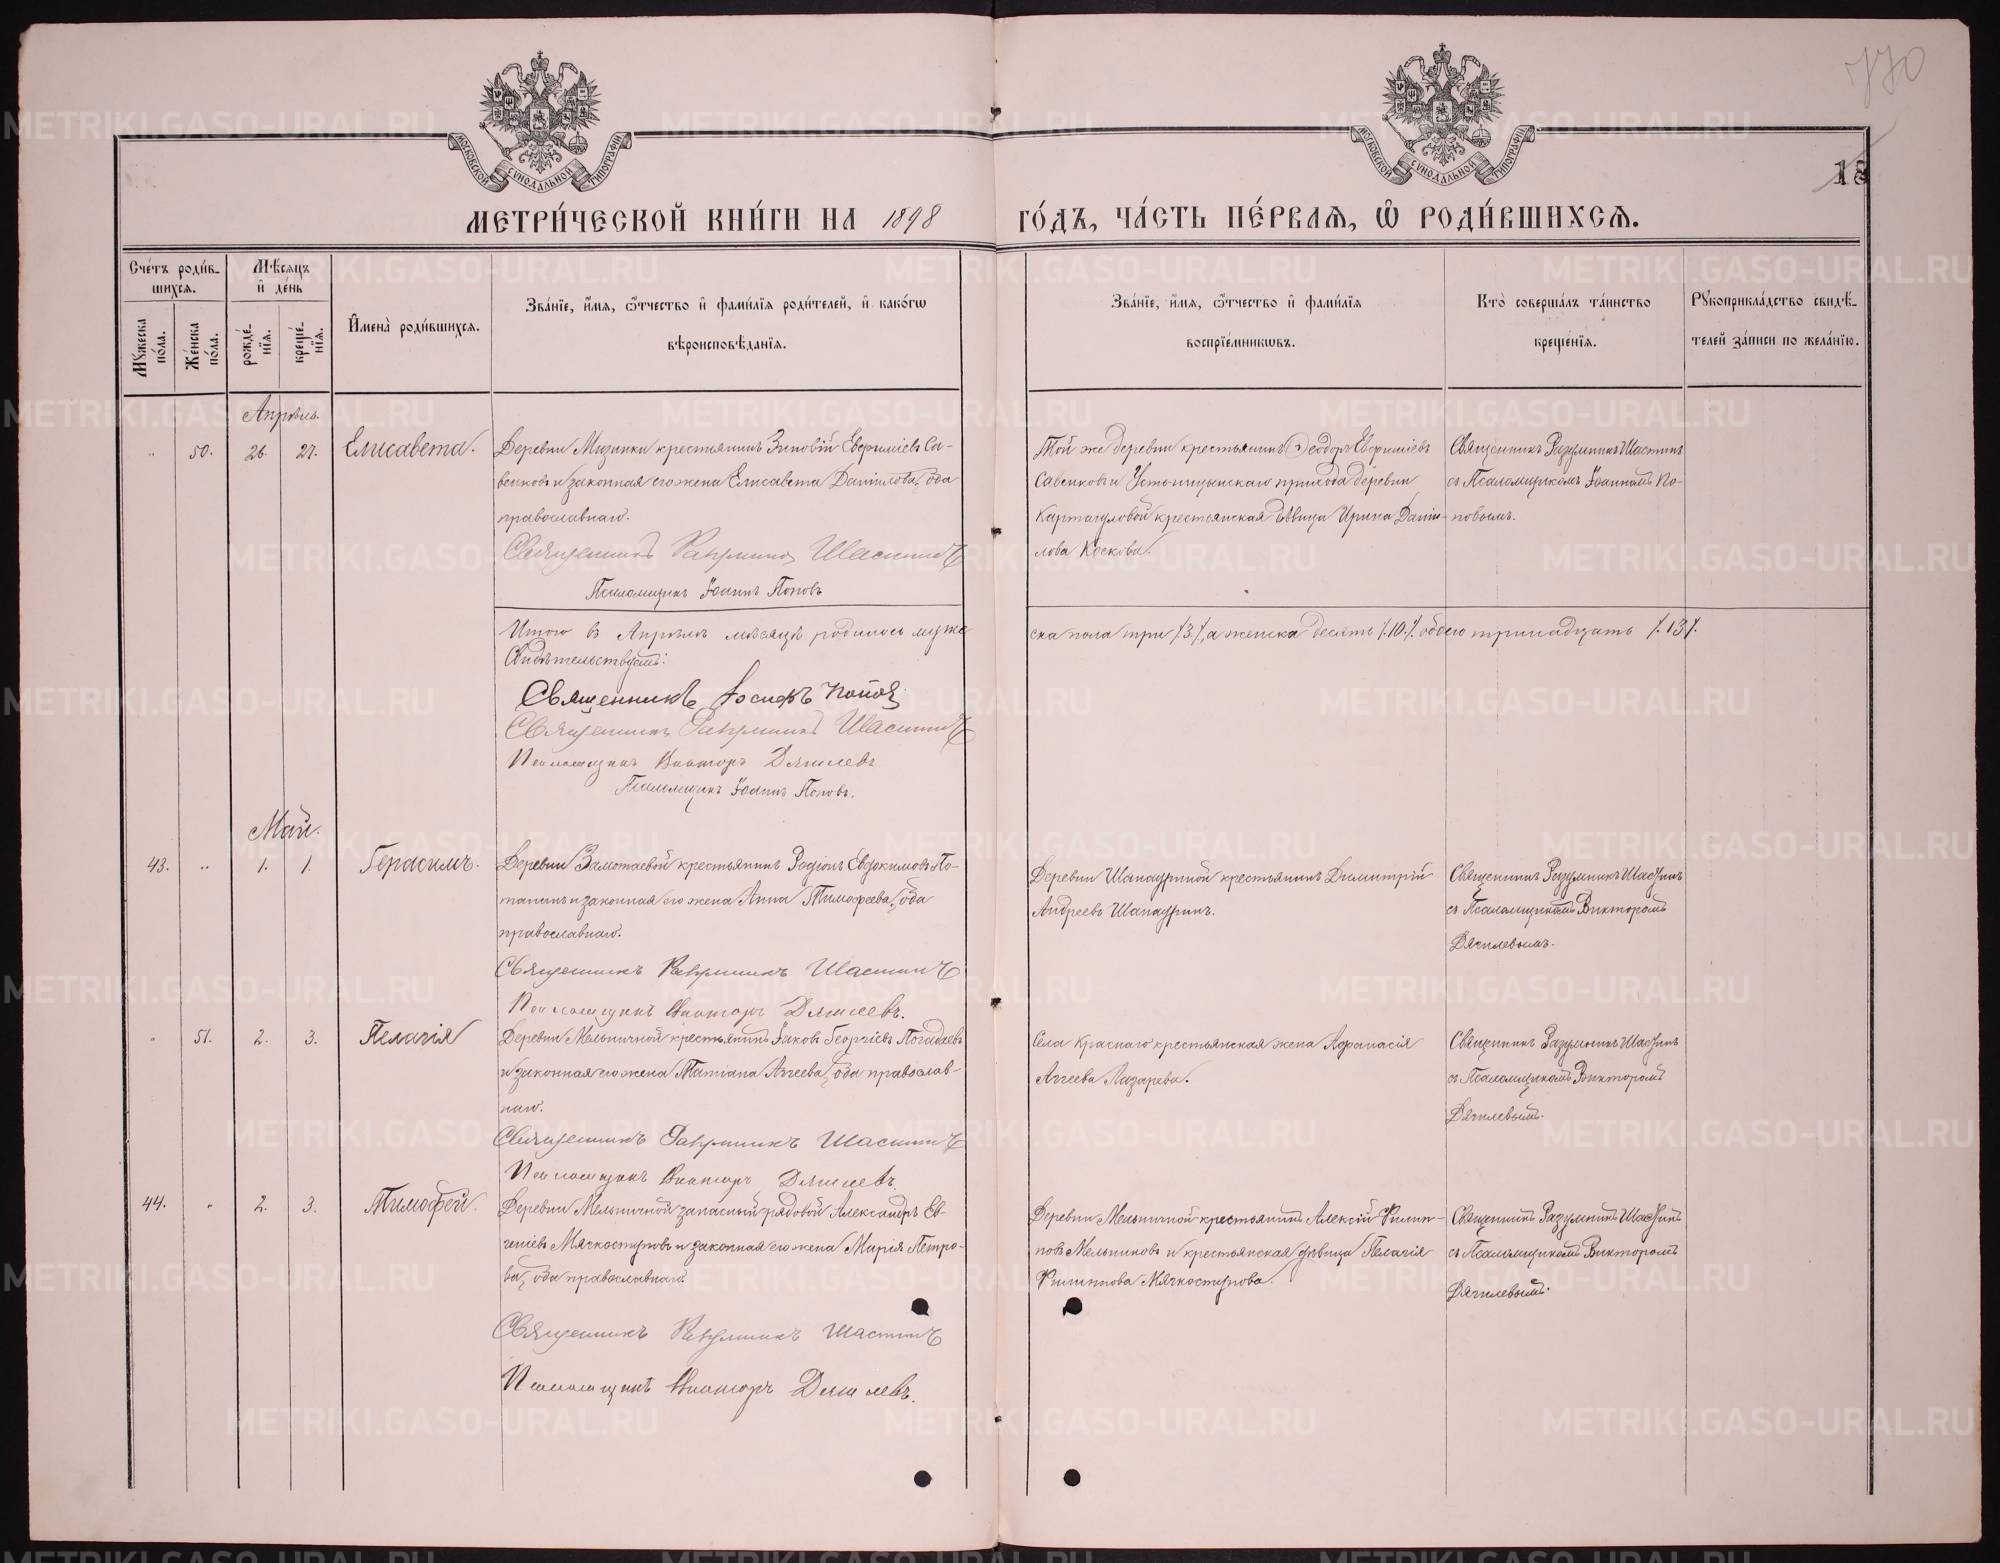 770
18
МОСКОВСКОЙ СѴНОДАЛЬНОЙ ТИПОГРАФІИ
МОСКОВСКОЙ СѴНОДАЛЬНОЙ ТИПОГРАФІИ
МЕТРИ́ЧЕСКОЙ КНИ́ГИ НА 1898 ГО́ДЪ, ЧА́СТЬ ПЕ́РВАЯ, Ѽ РОДИ́ВШИХСЯ.
Сче́тъ роди́в-
шихся.
Мꙋжеска по́ла.
Же́нска по́ла.
Мѣ́сяцъ и҆ де́нь
рожде́-нїя.
креще́-нїя.
И҆мена̀ роди́вшихся.
Зва́нїе, и҆́мя, ѻ҆́тчество и҆ фами́лїя роди́телей, и҆ како́гѡ
вѣроисповѣ́данїя.
Зва́нїе, и҆́мя, ѻ҆́тчество и҆ фами́лїя
воспрїе́мникѡвъ.
Кто̀ соверша́лъ та́инство
креще́нїя.
Рꙋкоприкла́дство свидѣ́-
телей за́писи по жела́нїю.
Апрѣль.
50. 26. 27. Елисавета.
Деревни Мизинки крестьянинъ Зиновій Евфиміевъ Са-
венковъ и законная его жена Елисавета Даніилова, оба
православнаго.
Священникъ Разумникъ Шастинъ
Псаломщикъ Іоаннъ Поповъ
Той же деревни крестьянинъ Ѳеодоръ Евфиміевъ
Савенковъ и Усть-ницынскаго прихода деревни
Картагуловой крестьянская дѣвица Ирина Даніи-
лова Коскова.
Священникъ Разумникъ Шастинъ
съ Псаломщикомъ Іоанномъ По-
повымъ.
Итого въ Апрѣлѣ мѣсяцѣ родилось муже
ска пола три /.3./, а женска десять /.10./. обоего тринадцать /.13./.
Свидѣтельствуемъ:
Священникъ Іосифъ Поповъ
Священникъ Разумникъ Шастинъ
Псаломщикъ Викторъ Дягилевъ
Псаломщикъ Іоаннъ Поповъ.
Май.
43. 1. 1. Герасимъ.
Деревни Замотаевой крестьянинъ Родіонъ Евдокимовъ По-
танинъ и законная его жена Анна Тимофеева, оба
православнаго.
Священникъ Разумникъ Шастинъ
Псаломщикъ Викторъ Дягилевъ.
Деревни Шапауриной крестьянинъ Димитрій
Андреевъ Шапауринъ.
Священникъ Разумникъ Шастинъ
съ Псаломщикомъ Викторомъ
Дягилевымъ.
51. 2. 3. Пелагія
Деревни Мельничной крестьянинъ Іаковъ Георгіевъ Погадаевъ
и законная его жена Татіана Аггеева, оба православ-
наго.
Священникъ Разумникъ Шастинъ
Псаломщикъ Викторъ Дягилевъ.
Села Краснаго крестьянская жена Афанасія
Аггеева Лазарева.
Священникъ Разумникъ Шастинъ
съ Псаломщикомъ Викторомъ
Дягилевымъ.
44. 2. 3. Тимофей.
Деревни Мельничной запасный рядовой Александръ Ев-
геніевъ Мягкоступовъ и законная его жена Марія Петро-
ва, оба православнаго.
Священникъ Разумникъ Шастинъ
Псаломщикъ Викторъ Дягилевъ.
Деревни Мельничной крестьянинъ Алексій Филип-
повъ Мельниковъ и крестьянская дѣвица Пелагія
Филиппова Мягкоступова.
Священникъ Разумникъ Шастинъ
съ Псаломщикомъ Викторомъ
Дягилевымъ.
METRIKI.GASO-URAL.RU